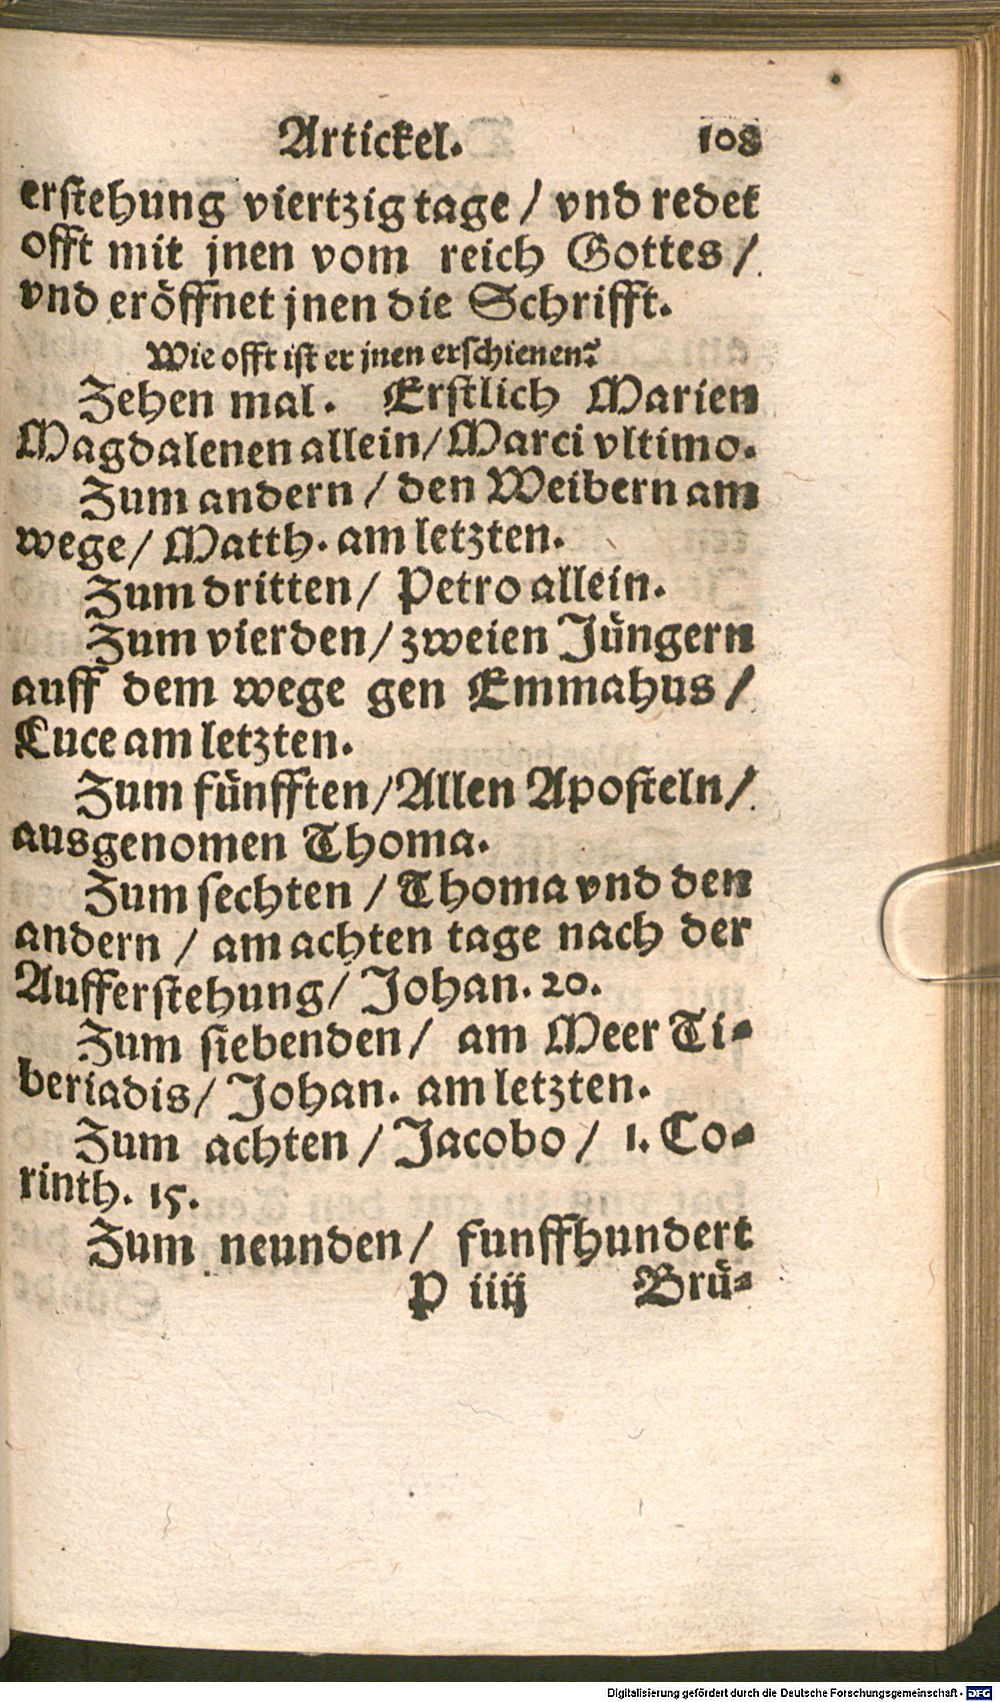 Artickel. 108
erstehung viertzig tage / vnd redet
offt mit jnen vom reich Gottes /
vnd eröffnet jnen die Schrifft.
Wie offt ist er jnen erschienen?
Zehen mal. Erstlich Marien
Magdalenen allein / Marci vltimo.
Zum andern / den Weibern am
wege / Matth. am letzten.
Zum dritten / Petro allein.
Zum vierden / zweien Jüngern
auff dem wege gen Emmahus /
Luce am letzten.
Zum fünfften / Allen Aposteln /
ausgenomen Thoma.
Zum sechten / Thoma vnd den
andern / am achten tage nach der
Aufferstehung / Johan. 20.
Zum siebenden / am Meer Ti-
beriadis / Johan. am letzten.
Zum achten / Jacobo / 1. Co-
rinth. 15.
Zum neunden / funffhundert
P iiij Brü-
Digitalisierung gefördert durch die Deutsche Forschungsgemeinschaft - DFG